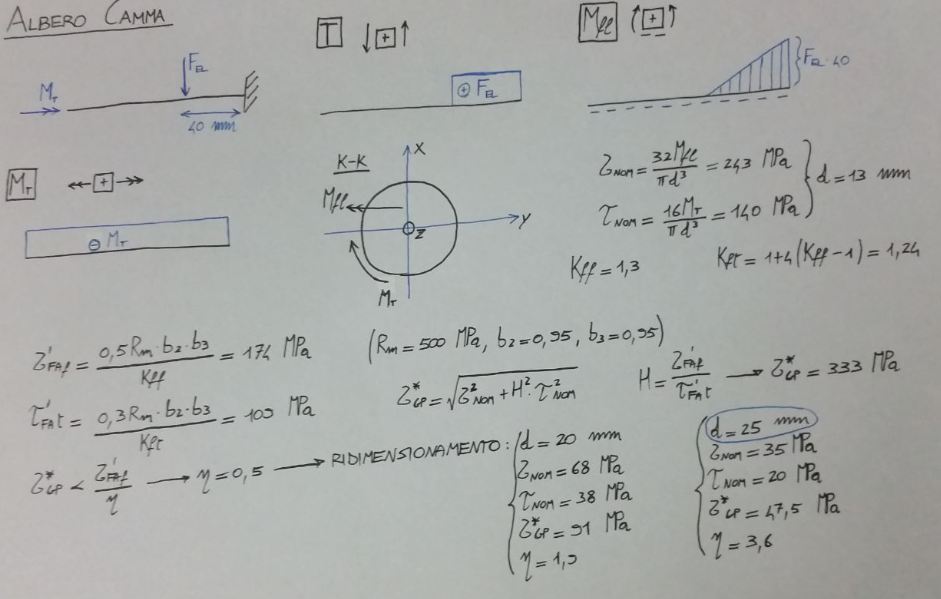 ALBERO CAMMA
T ↓ + ↑
Mfl ( + )
M_T F_EL 40 mm
⊕ F_EL
F_EL·40
M_T ←← + →→
⊖ M_T
K-K
x
Mfl
z y
M_T
σ_NOM = 32Mfl/πd³ = 243 MPa
τ_NOM = 16M_T/πd³ = 140 MPa } d = 13 mm
Kff = 1,3 Kft = 1+4(Kff-1) = 1,24
σ'_FAf = 0,5Rm·b2·b3/Kff = 174 MPa (Rm = 500 MPa, b2 = 0,95, b3 = 0,95)
τ'_FAt = 0,3Rm·b2·b3/Kft = 109 MPa σ*_GP = √(σ²_NOM + H²·τ²_NOM) H = σ'_FAf/τ'_FAt → σ*_GP = 333 MPa
σ*_GP < σ'_FAf/η → η = 0,5 → RIDIMENSIONAMENTO:
d = 20 mm
σ_NOM = 68 MPa
τ_NOM = 38 MPa
σ*_GP = 91 MPa
η = 1,9
d = 25 mm
σ_NOM = 35 MPa
τ_NOM = 20 MPa
σ*_GP = 47,5 MPa
η = 3,6